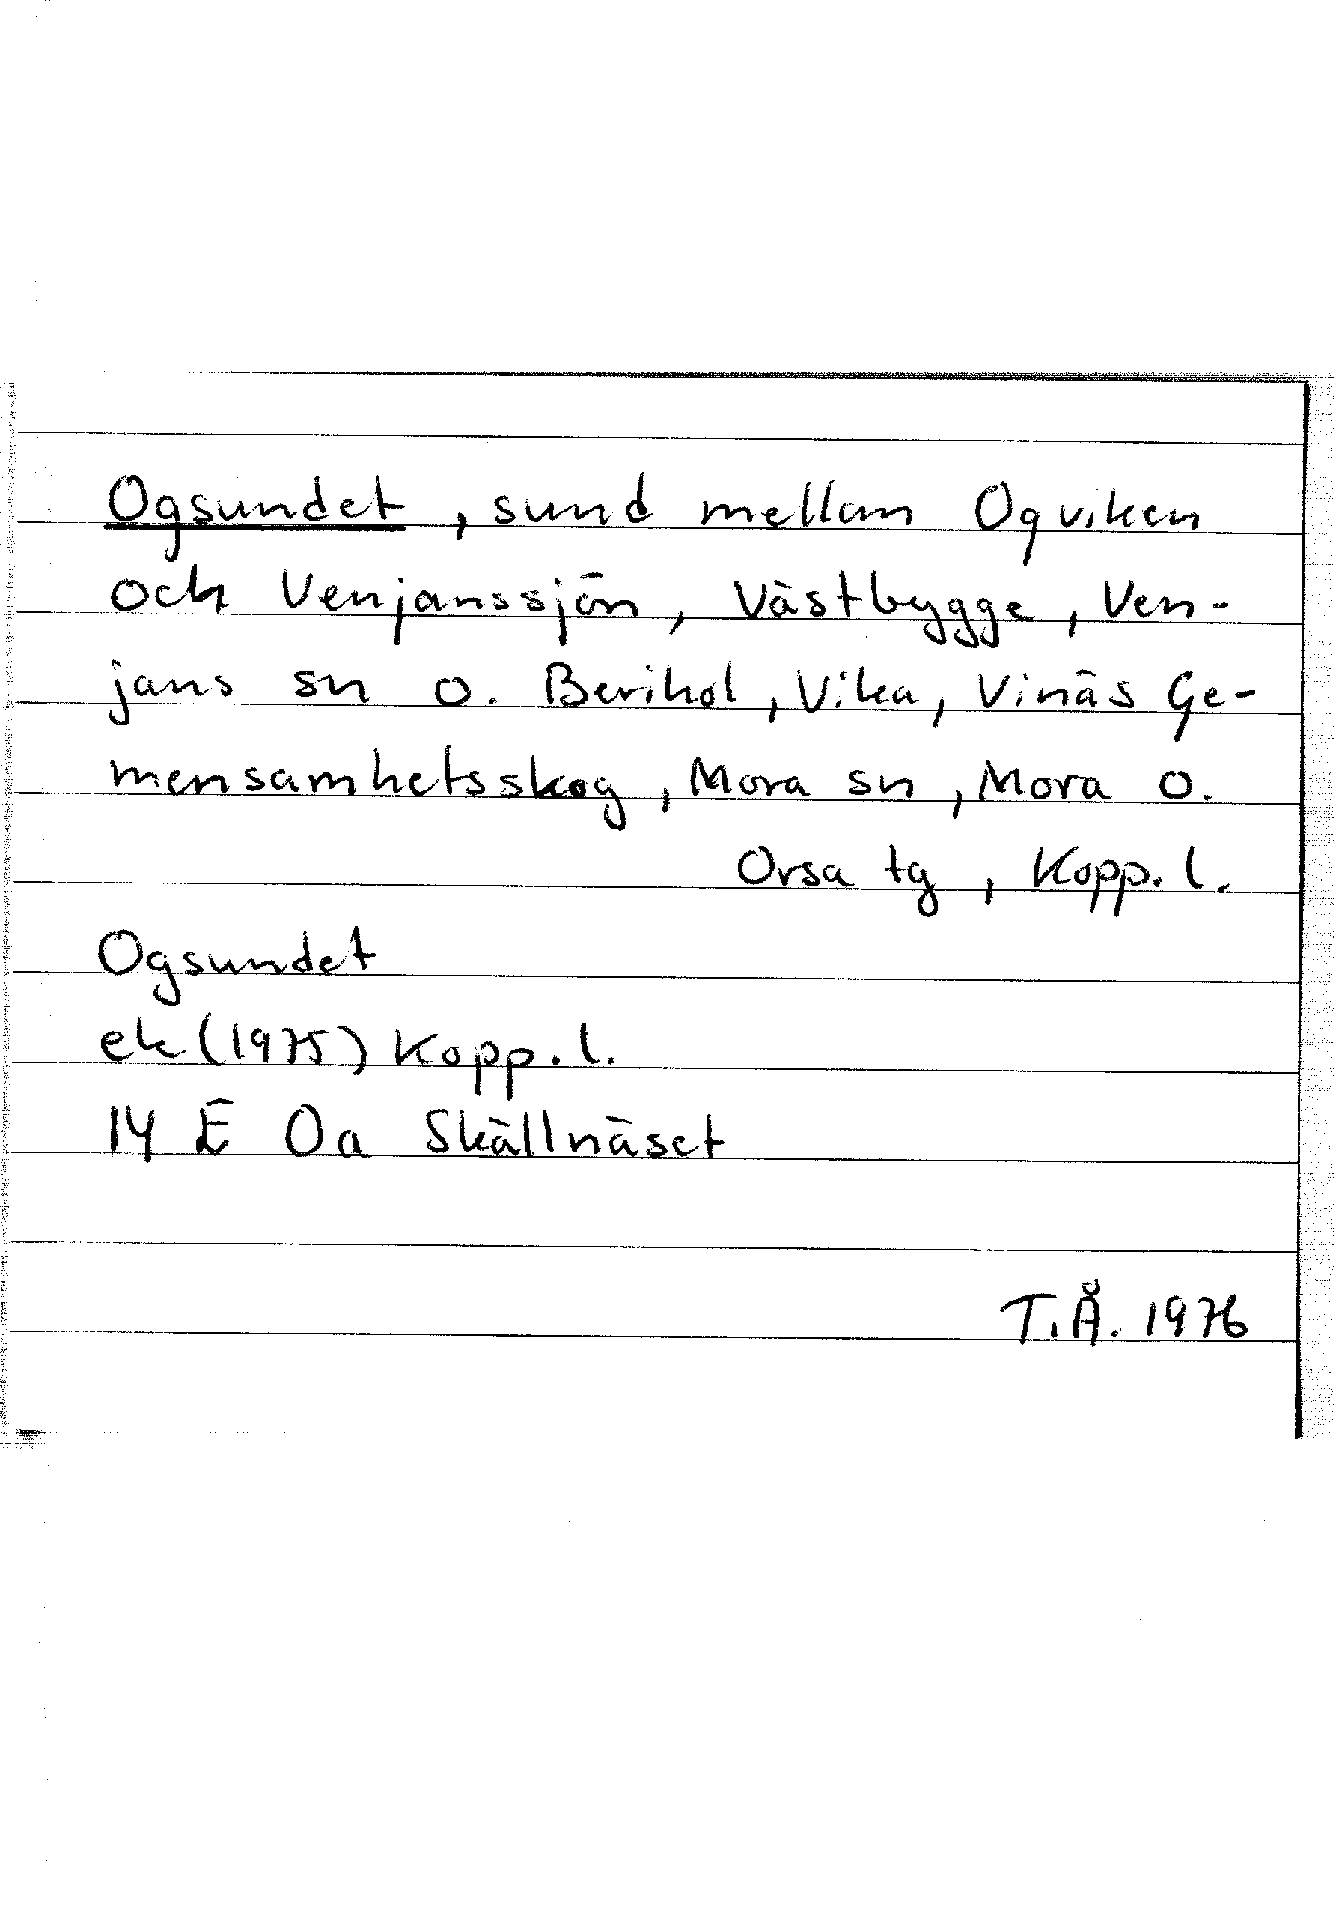 Ogsundet, sund mellan Ogviken
och Venjanssjön, Västbygge, Ven-
jans sn o. Berikol, Vika, Vinäs Ge-
mensamhetsskog, Mora sn, Mora o.
Orsa tg, Kopp. l.
Ogsundet
ek (1975) Kopp. l.
14 E 0a Skållnäset
T.Å. 1976